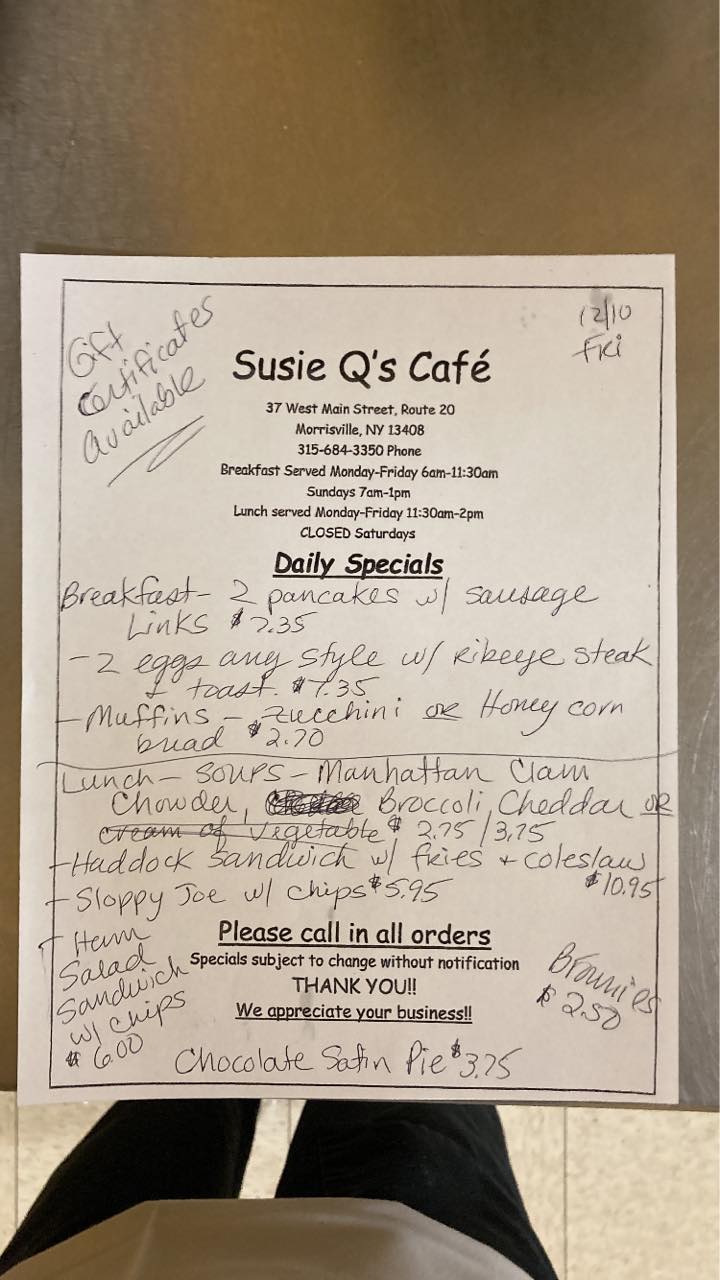 Gift
Certificates
Available
12/10
Fri
Susie Q's Café
37 West Main Street, Route 20
Morrisville, NY 13408
315-684-3350 Phone
Breakfast Served Monday-Friday 6am-11:30am
Sundays 7am-1pm
Lunch served Monday-Friday 11:30am-2pm
CLOSED Saturdays
Daily Specials
Breakfast- 2 pancakes w/ sausage
Links $7.35
- 2 eggs any style w/ Ribeye steak
+ toast. $7.35
- Muffins - Zucchini or Honey corn
bread $2.70
Lunch - Soups - Manhattan Clam
Chowder, Broccoli Cheddar or
cream of vegetable $ 2.75/3.75
- Haddock Sandwich w/ fries + coleslaw
$10.95
- Sloppy Joe w/ chips $5.95
- Ham
Salad
Sandwich
w/ chips
$ 6.00
Please call in all orders
Specials subject to change without notification
THANK YOU!!
We appreciate your business!!
Brownies
$ 2.50
Chocolate Satin Pie $3.75